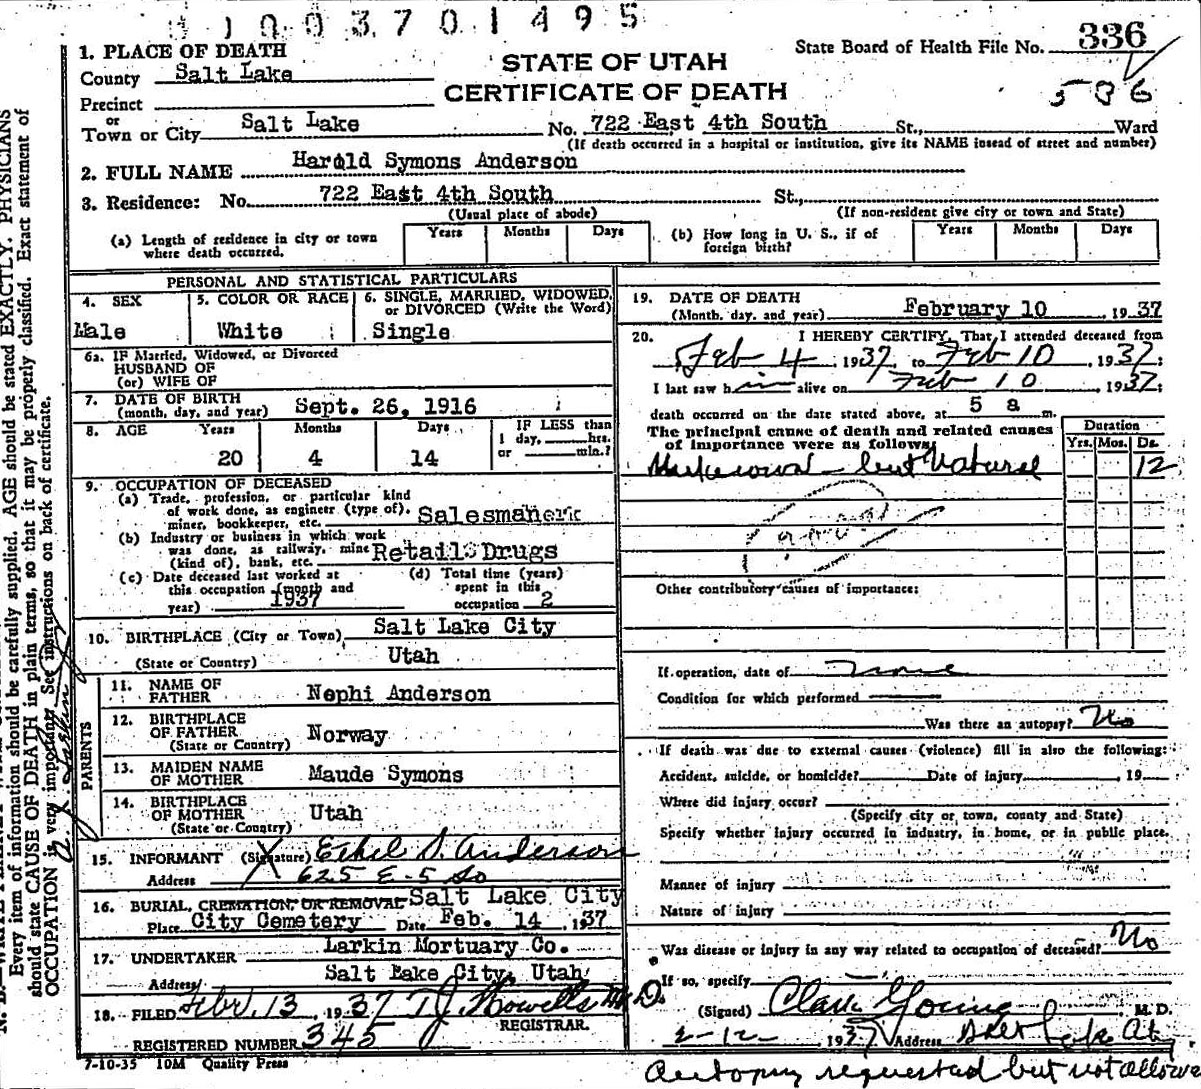 1003701495
STATE OF UTAH
CERTIFICATE OF DEATH
State Board of Health File No. 336
586
1. PLACE OF DEATH
County Salt Lake
Precinct
or
Town or City Salt Lake No. 722 East 4th South St., Ward
(If death occurred in a hospital or institution, give its NAME instead of street and number)
2. FULL NAME Harold Symons Anderson
3. Residence: No. 722 East 4th South St.,
(Usual place of abode) (If non-resident give city or town and State)
(a) Length of residence in city or town where death occurred. Years Months Days
(b) How long in U. S., if of foreign birth? Years Months Days
PERSONAL AND STATISTICAL PARTICULARS
4. SEX
Male
5. COLOR OR RACE
White
6. SINGLE, MARRIED, WIDOWED, or DIVORCED (Write the Word)
Single
6a. IF Married, Widowed, or Divorced
HUSBAND OF
(or) WIFE OF
7. DATE OF BIRTH
(month, day, and year) Sept. 26, 1916
8. AGE Years Months Days
20 4 14
IF LESS than
1 day, hrs.
or min.?
9. OCCUPATION OF DECEASED
(a) Trade, profession, or particular kind
of work done, as engineer (type of),
miner, bookkeeper, etc. Salesman
(b) Industry or business in which work
was done, as railway, mine
(kind of), bank, etc. Retail Drugs
(c) Date deceased last worked at
this occupation (month and
year) 1937
(d) Total time (years)
spent in this
occupation 2
10. BIRTHPLACE (City or Town) Salt Lake City
(State or Country) Utah
PARENTS
11. NAME OF
FATHER Nephi Anderson
12. BIRTHPLACE
OF FATHER
(State or Country) Norway
13. MAIDEN NAME
OF MOTHER Maude Symons
14. BIRTHPLACE
OF MOTHER
(State or Country) Utah
15. INFORMANT (Signature) Ethel S. Anderson
Address 625 E - 5 So
16. BURIAL, CREMATION, OR REMOVAL Salt Lake City
Place City Cemetery Date Feb. 14, 1937
17. UNDERTAKER Larkin Mortuary Co.
Address Salt Lake City, Utah
18. FILED Febr. 13, 1937 T J Howells M.D.
REGISTRAR.
REGISTERED NUMBER 345
7-10-35 10M Quality Press
19. DATE OF DEATH
(Month, day, and year) February 10, 1937
20. I HEREBY CERTIFY, That I attended deceased from
Feb 4, 1937, to Feb 10, 1937;
I last saw him alive on Feb 10, 1937;
death occurred on the date stated above, at 5 a m.
The principal cause of death and related causes
of importance were as follows:
Duration
Yrs. Mos. Ds.
Unknown - but Natural 12
Other contributory causes of importance:
If operation, date of None
Condition for which performed
Was there an autopsy? No
If death was due to external causes (violence) fill in also the following:
Accident, suicide, or homicide? Date of injury , 19
Where did injury occur?
(Specify city or town, county and State)
Specify whether injury occurred in industry, in home, or in public place.
Manner of injury
Nature of injury
Was disease or injury in any way related to occupation of deceased? No
If so, specify
(Signed) Clark Young M. D.
2-12- 1937 Address Salt Lake
Autopsy requested but not allowed
Every item of information should be carefully supplied. AGE should be stated EXACTLY. PHYSICIANS
should state CAUSE OF DEATH in plain terms, so that it may be properly classified. Exact statement of
OCCUPATION is very important. See instructions on back of certificate.